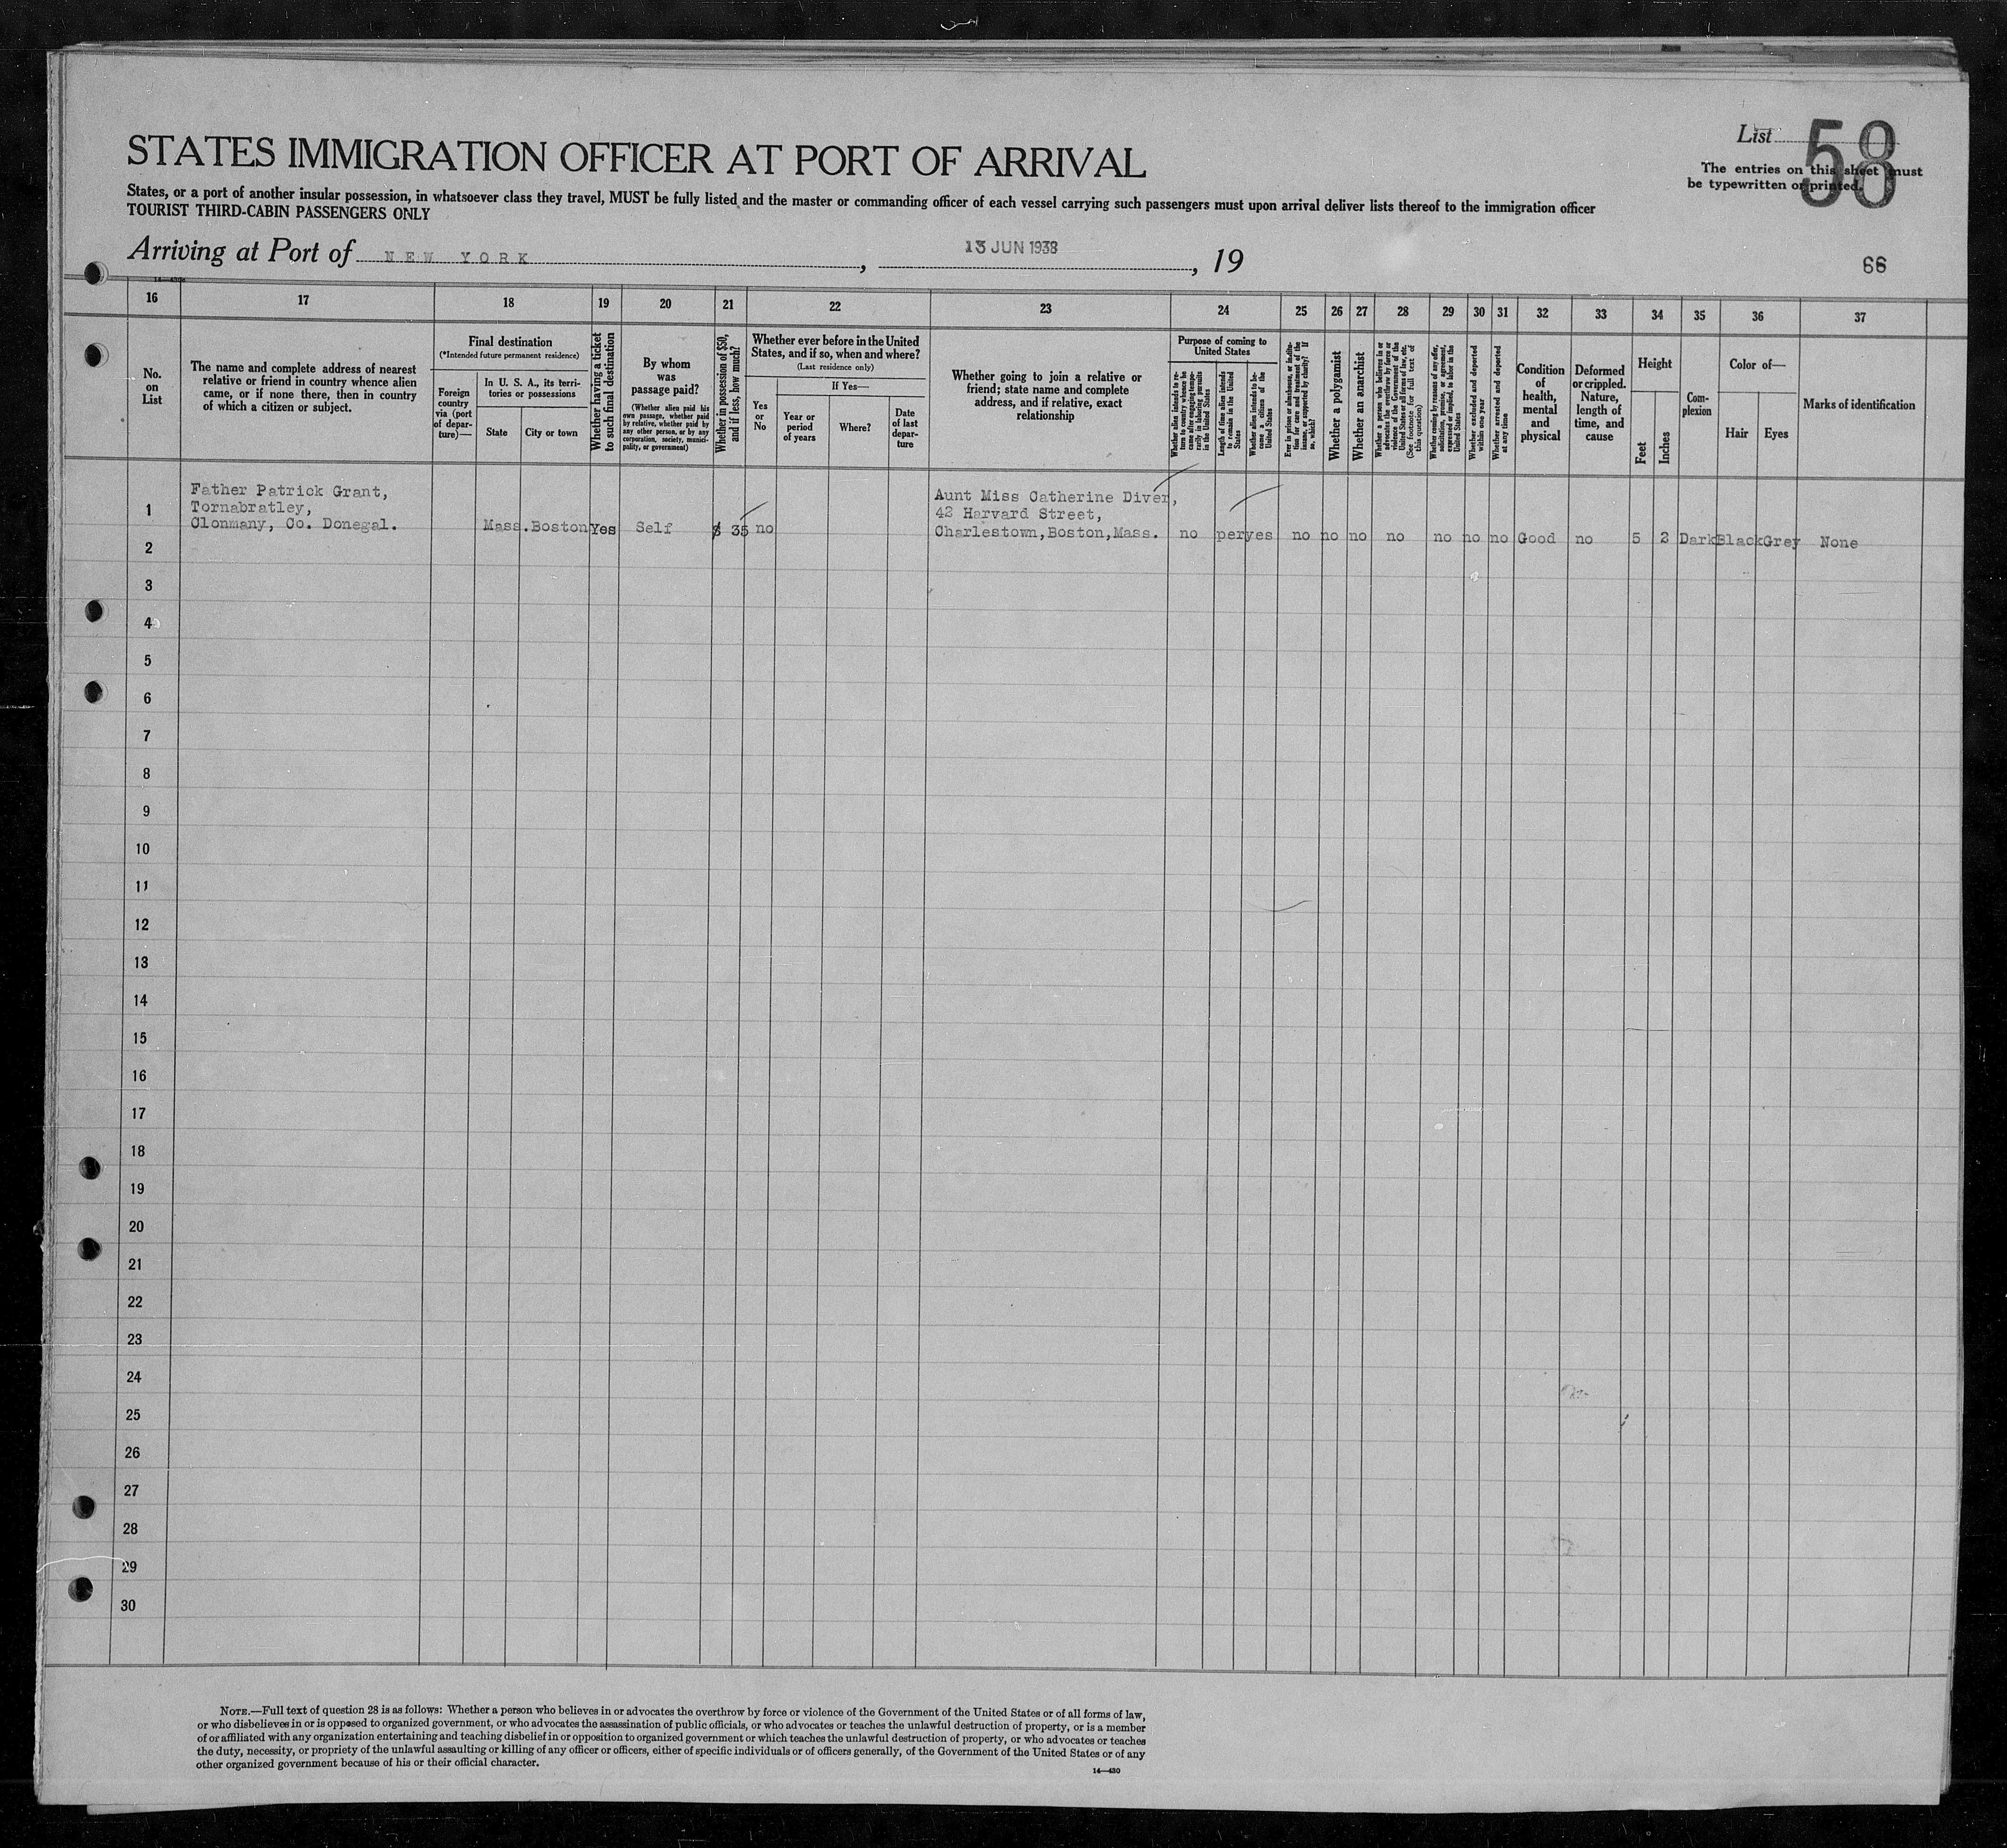 STATES IMMIGRATION OFFICER AT PORT OF ARRIVAL
List
58
The entries on this sheet must
be typewritten or printed.
States, or a port of another insular possession, in whatsoever class they travel, MUST be fully listed and the master or commanding officer of each vessel carrying such passengers must upon arrival deliver lists thereof to the immigration officer
TOURIST THIRD-CABIN PASSENGERS ONLY
Arriving at Port of NEW YORK , 13 JUN 1938 , 19
66
16 17 18 19 20 21 22 23 24 25 26 27 28 29 30 31 32 33 34 35 36 37
No.
on
List
The name and complete address of nearest
relative or friend in country whence alien
came, or if none there, then in country
of which a citizen or subject.
Final destination
(*Intended future permanent residence)
Foreign
country
via (port
of depar-
ture)—
In U. S. A., its terri-
tories or possessions
State
City or town
Whether having a ticket
to such final destination
By whom
was
passage paid?
(Whether alien paid his
own passage, whether paid
by relative, whether paid by
any other person, or by any
corporation, society, munici-
pality, or government)
Whether in possession of $50,
and if less, how much?
Whether ever before in the United
States, and if so, when and where?
(Last residence only)
Yes
or
No
If Yes—
Year or
period
of years
Where?
Date
of last
depar-
ture
Whether going to join a relative or
friend; state name and complete
address, and if relative, exact
relationship
Purpose of coming to
United States
Whether alien intends to re-
turn to country whence he
came after engaging tempo-
rarily in laboring pursuits
in the United States
Length of time alien intends
to remain in the United
States
Whether alien intends to be-
come a citizen of the
United States
Ever in prison or almshouse, or institu-
tion for care and treatment of the
insane, or supported by charity? If
so, which?
Whether a polygamist
Whether an anarchist
Whether a person who believes in or
advocates the overthrow by force or
violence of the Government of the
United States or all forms of law, etc.
(See footnote for full text of
this question)
Whether coming by reasons of any offer,
solicitation, promise, or agreement,
expressed or implied, to labor in the
United States
Whether excluded and deported
within one year
Whether arrested and deported
at any time
Condition
of
health,
mental
and
physical
Deformed
or crippled.
Nature,
length of
time, and
cause
Height
Feet
Inches
Com-
plexion
Color of—
Hair
Eyes
Marks of identification
1
Father Patrick Grant,
Tornabratley,
Clonmany, Co. Donegal.
Mass. Boston Yes Self $ 35 no
Aunt Miss Catherine Diver,
42 Harvard Street,
Charlestown, Boston, Mass.
no per yes no no no no no no no Good no 5 2 Dark Black Grey None
2
3
4
5
6
7
8
9
10
11
12
13
14
15
16
17
18
19
20
21
22
23
24
25
26
27
28
29
30
NOTE.—Full text of question 28 is as follows: Whether a person who believes in or advocates the overthrow by force or violence of the Government of the United States or of all forms of law,
or who disbelieves in or is opposed to organized government, or who advocates the assassination of public officials, or who advocates or teaches the unlawful destruction of property, or is a member
of or affiliated with any organization entertaining and teaching disbelief in or opposition to organized government or which teaches the unlawful destruction of property, or who advocates or teaches
the duty, necessity, or propriety of the unlawful assaulting or killing of any officer or officers, either of specific individuals or of officers generally, of the Government of the United States or of any
other organized government because of his or their official character.
14—430